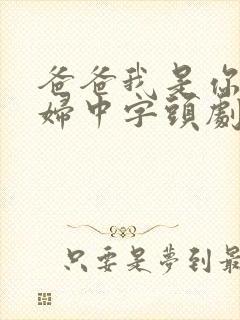 爸爸我是你
婦中字頭劇
只要是夢到最